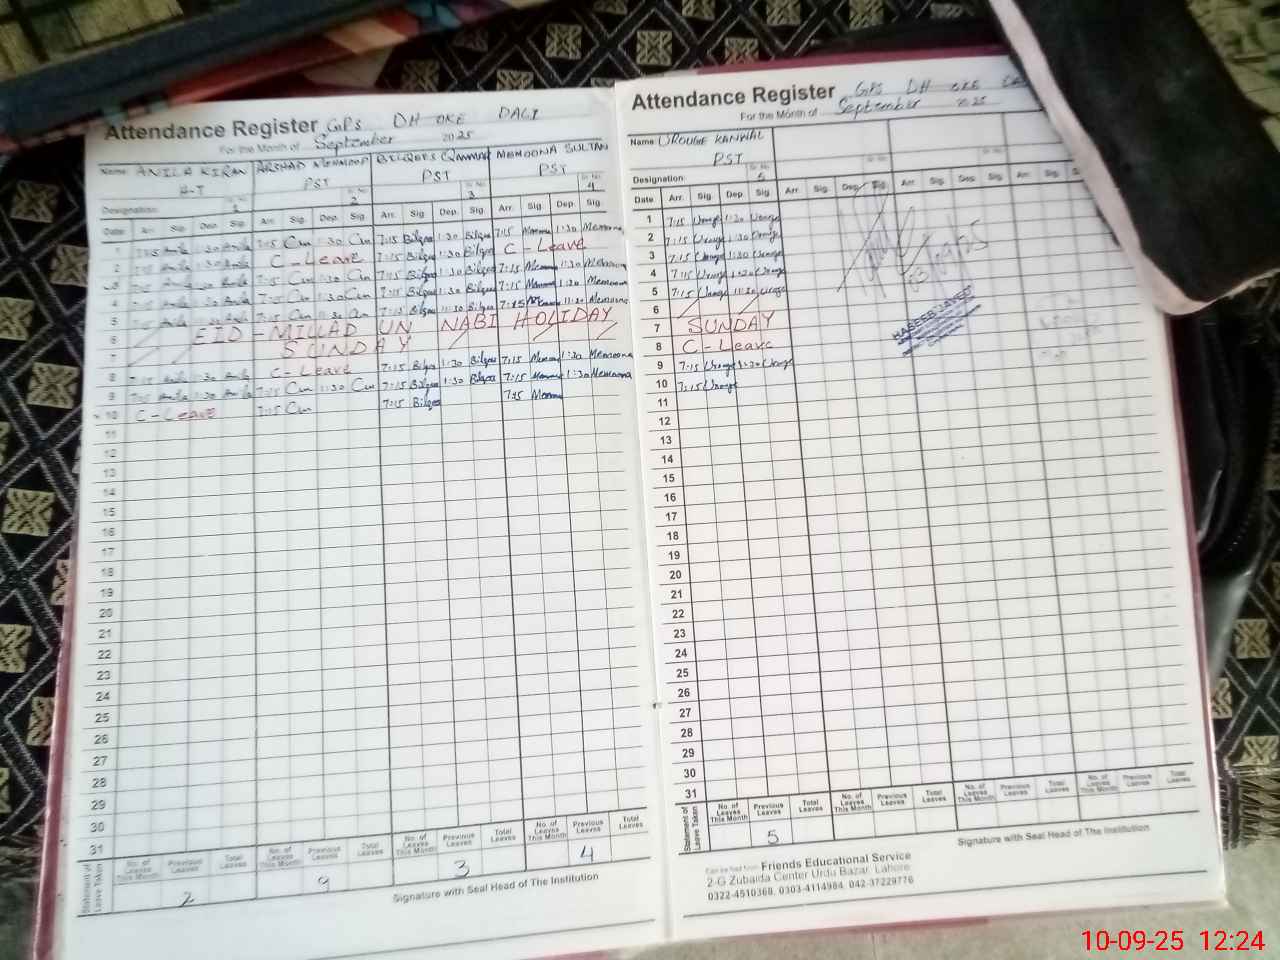 Attendance Register GPS DHOKE DALI
For the Month of September 2025
Name ANILA KIRAN ARSHAD MEHMOOD BILQEES QAMMAR MEMOONA SULTAN
H-T PST PST PST
Designation 1 Sr. No. 2 Sr. No. 3 Sr. No. 4
Date Arr. Sig. Dep. Sig. Arr. Sig. Dep. Sig. Arr. Sig. Dep. Sig. Arr. Sig. Dep. Sig.
1 7:15 Anila 1:30 Anila 7:15 1:30 7:15 Bilqees 1:30 Bilqees 7:15 Memoona 1:30 Memoona
2 7:15 Anila 1:30 Anila C-Leave 7:15 Bilqees 1:30 Bilqees C-Leave
3 7:15 Anila 1:30 Anila 7:15 1:30 7:15 Bilqees 1:30 Bilqees 7:15 Memoona 1:30 Memoona
4 7:15 Anila 1:30 Anila 7:15 1:30 7:15 Bilqees 1:30 Bilqees 7:15 Memoona 1:30 Memoona
5 7:15 Anila Anila 7:15 11:30 7:15 Bilqees 11:30 Bilqees 7:15 Memoona 11:30 Memoona
6 EID-MILLAD UN NABI HOLIDAY
7 SUNDAY
8 7:15 Anila 1:30 Anila C-Leave 7:15 Bilqees 1:30 Bilqees 7:15 Memoona 1:30 Memoona
9 7:15 Anila 1:30 Anila 7:15 1:30 7:15 Bilqees 1:30 Bilqees 7:15 Memoona 1:30 Memoona
10 C-Leave 7:15 7:15 Bilqees 7:15 Memoona
11
12
13
14
15
16
17
18
19
20
21
22
23
24
25
26
27
28
29
30
31
Statement of Leave Taken No. of Leaves This Month Previous Leaves Total Leaves No. of Leaves This Month Previous Leaves Total Leaves No. of Leaves This Month Previous Leaves Total Leaves No. of Leaves This Month Previous Leaves Total Leaves
2 9 3 4
Signature with Seal Head of The Institution
Attendance Register GPS DHOKE
For the Month of September 2025
Name UROUGE KANWAL
PST
Designation Sr. No. 5
Date Arr. Sig. Dep. Sig. Arr. Sig. Dep. Sig. Arr. Sig. Dep. Sig. Arr. Sig.
1 7:15 Urouge 1:30 Urouge
2 7:15 Urouge 1:30 Urouge
3 7:15 Urouge 1:30 Urouge
4 7:15 Urouge 1:30 Urouge
5 7:15 Urouge 11:30 Urouge
6
7 SUNDAY
8 C-Leave
9 7:15 Urouge 1:30 Urouge
10 7:15 Urouge
HABEEB JAVED
11
12
13
14
15
16
17
18
19
20
21
22
23
24
25
26
27
28
29
30
31
Statement of Leave Taken No. of Leaves This Month Previous Leaves Total Leaves No. of Leaves This Month Previous Leaves Total Leaves No. of Leaves This Month Previous Leaves Total Leaves No. of Leaves This Month Previous Leaves Total Leaves
5
Signature with Seal Head of The Institution
Can be had from: Friends Educational Service
2-G Zubaida Center Urdu Bazar, Lahore
0322-4510368, 0303-4114984 042-37229776
10-09-25 12:24